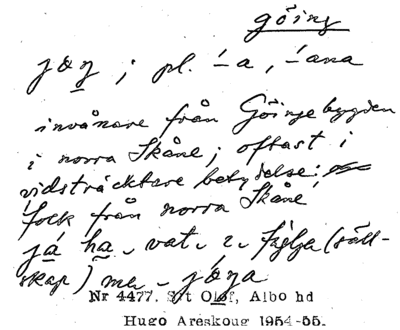 göing
jøŋ; pl. -́a, -́ana
invånare från Göingebygden
i norra Skåne; oftast i
vidsträcktare betydelse:
folk från norra Skåne,
já ha vat i (säll-
skap) me jøŋa
Nr 4477. S:t Olof, Albo hd
Hugo Areskoug 1954-55.